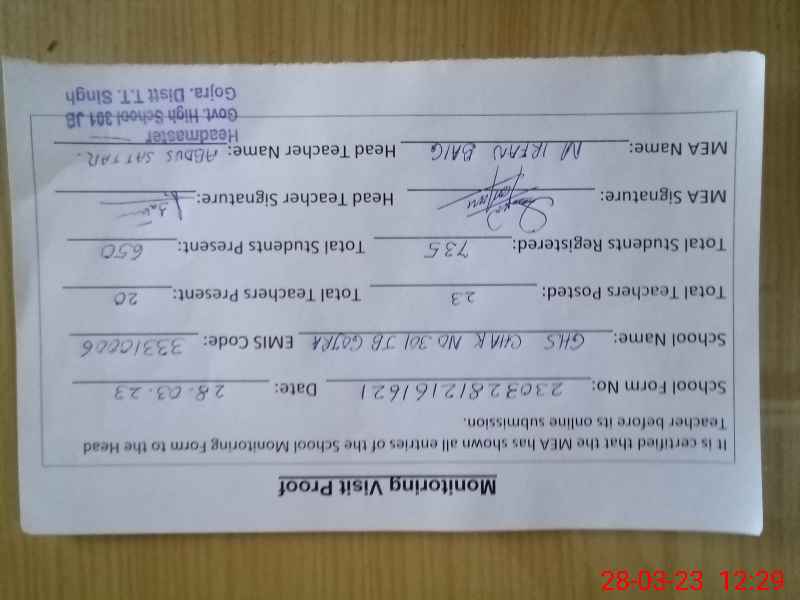 Monitoring Visit Proof
It is certified that the MEA has shown all entries of the School Monitoring Form to the Head
Teacher before its online submission.
School Form No: 23032812161621 Date: 28.03.23
School Name: GHS CHAK NO 301 JB GOJRA EMIS Code: 33310006
Total Teachers Posted: 23 Total Teachers Present: 20
Total Students Registered: 735 Total Students Present: 650
MEA Signature: Head Teacher Signature:
MEA Name: M IRFAN BAIG Head Teacher Name: ABDUS SATTAR.
Headmaster
Govt. High School 301 JB
Gojra. Distt T.T. Singh
28-03-23 12:29